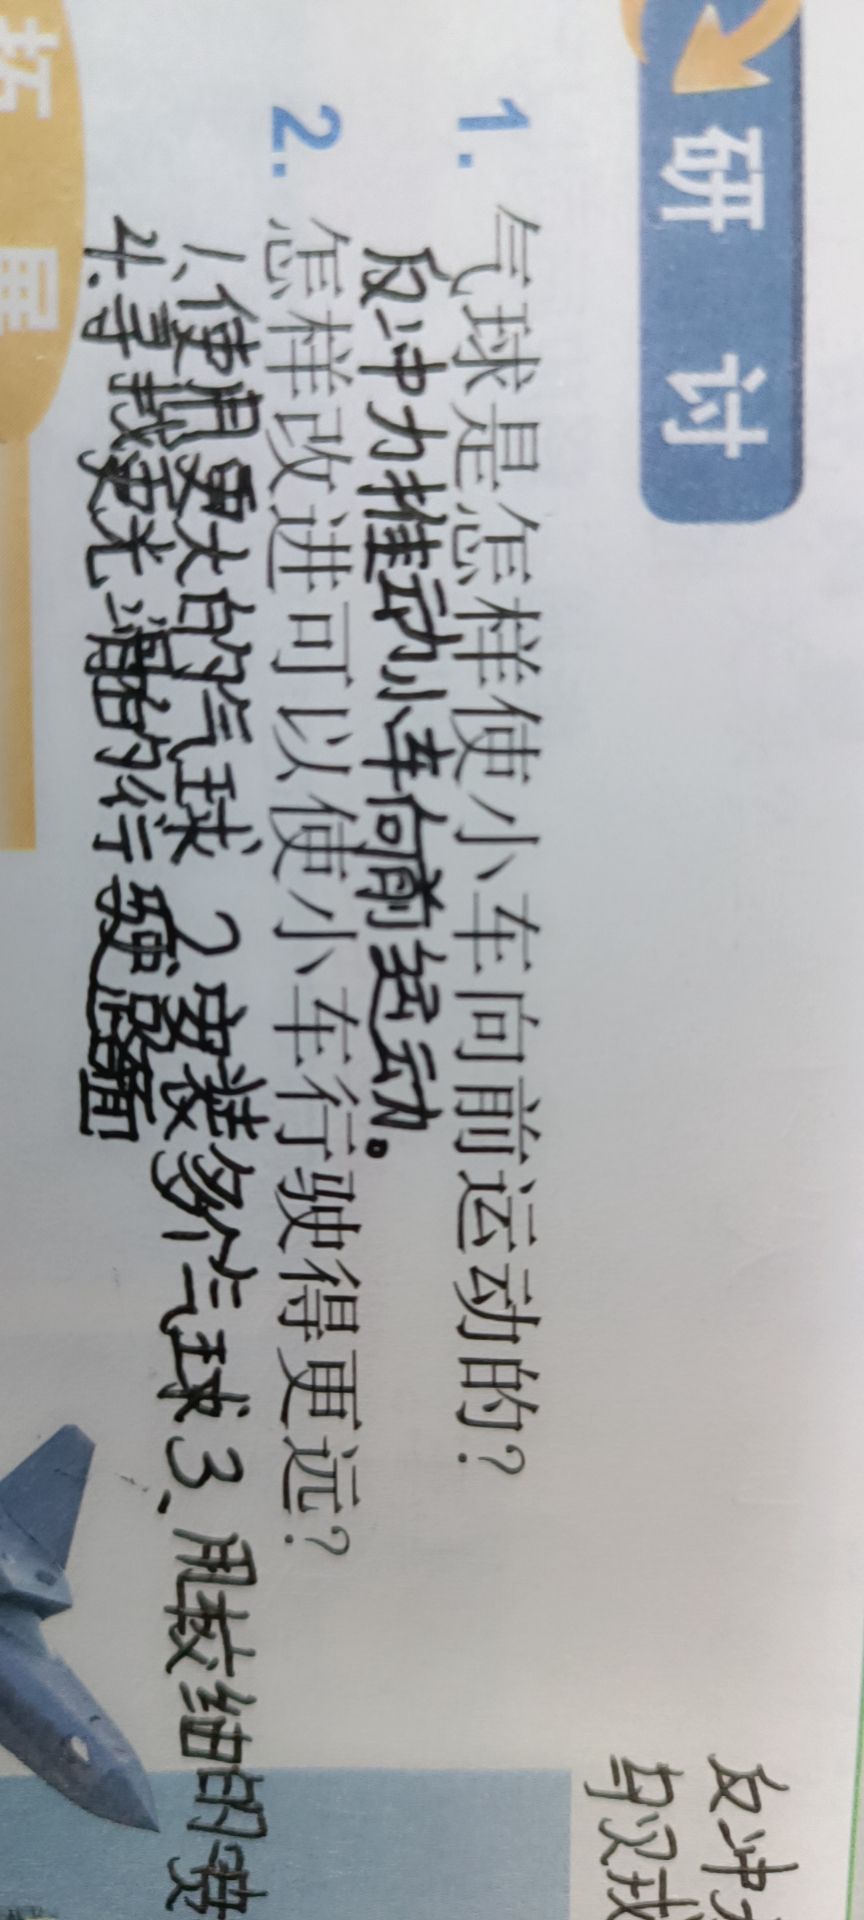 研讨
1. 气球是怎样使小车向前运动的？
反冲力推动小车向前运动。
2. 怎样改进可以使小车行驶得更远？
1、使用更大的气球 2安装多个气球 3、用较细的喷
4.寻找更光滑的行驶路面
拓展
反冲